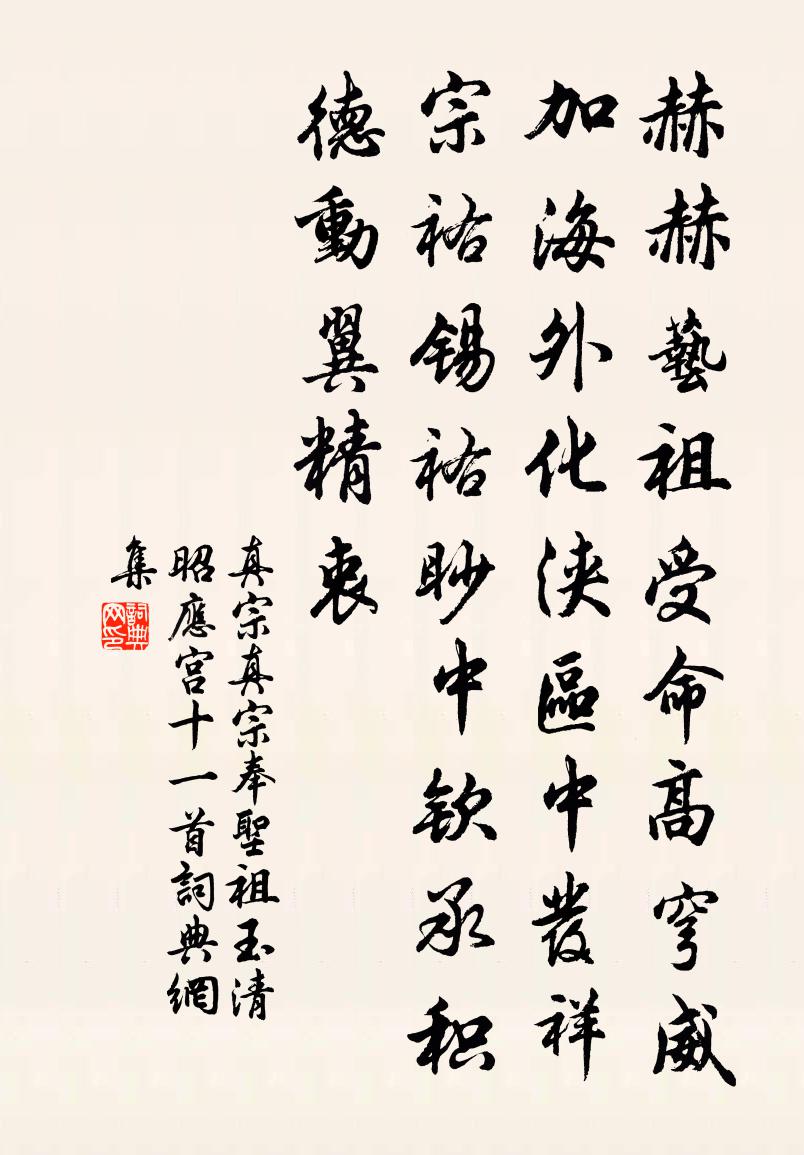 赫赫藝祖受命高穹威
加海外化浹區中發祥
宗祐錫祐眇中欽承积
德動翼精衷
真宗真宗奉聖祖玉清
昭應宮十一首詞典網
集
詞典網印